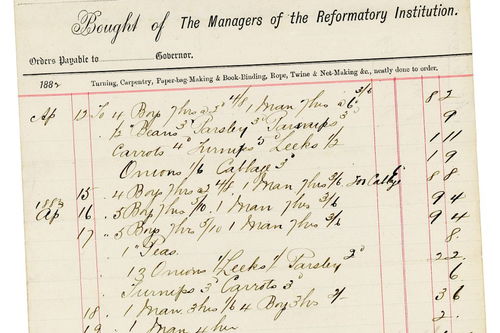 Bought of The Managers of the Reformatory Institution.
Orders Payable to Governor.
188 Turning, Carpentry, Paper-bag-Making & Book-Binding, Rope, Twine & Net-Making &c., neatly done to order.
Ap 12 To 4 Boys 7 hrs 4/8 1 Man 7 hrs 3/6 8 2
1/2 Beans 3d Parsley 3d Turnips 3d 9
Carrots 4d Turnips 3d Leeks 1/2 1 11
Onions 1/6 Cabbage 3d 1 9
15 " 4 Boys 7 hrs 4/8 1 Man 7 hrs 3/6 8
1883
Ap 16 " 5 Boys 7 hrs 5/10 1 Man 7 hrs 3/6 9 4
17 " 5 Boys 7 hrs 5/10 1 Man 7 hrs 3/6 9 4
1 " Peas. 8.
13 Onions 1/ Leeks 1/ Parsley 2d 2 2
Turnips 3d Carrots 3d 6
18 " 1 Man 3 hrs 1/6 4 Boys 3 hrs 2/- 3 6
19 " 1 Man 4 hrs 2